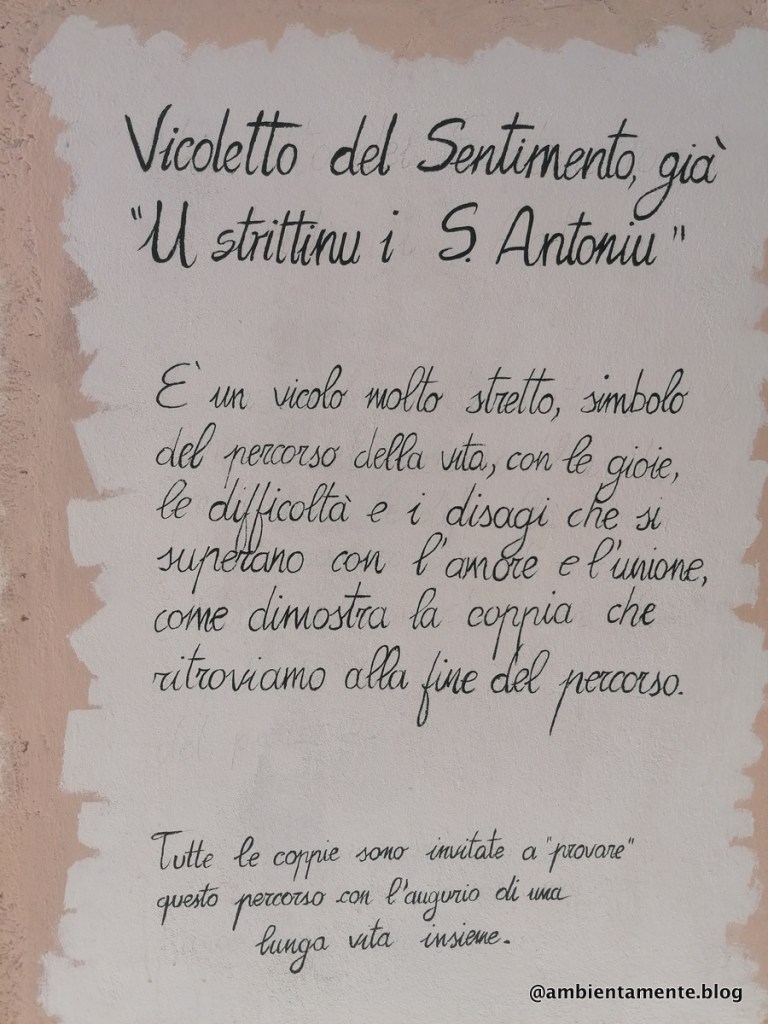 Vicoletto del Sentimento, già
"U strittinu i S. Antoniu"
E' un vicolo molto stretto, simbolo
del percorso della vita, con le gioie,
le difficoltà e i disagi che si
superano con l'amore e l'unione,
come dimostra la coppia che
ritroviamo alla fine del percorso.
Tutte le coppie sono invitate a "provare"
questo percorso con l'augurio di una
lunga vita insieme.
@ambientamente.blog